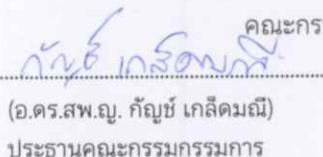 คณะกร
กัญช์ เกล็ดมณี
(อ.ดร.สพ.ญ. กัญช์ เกล็ดมณี)
ประธานคณะกรรมกรรมการ